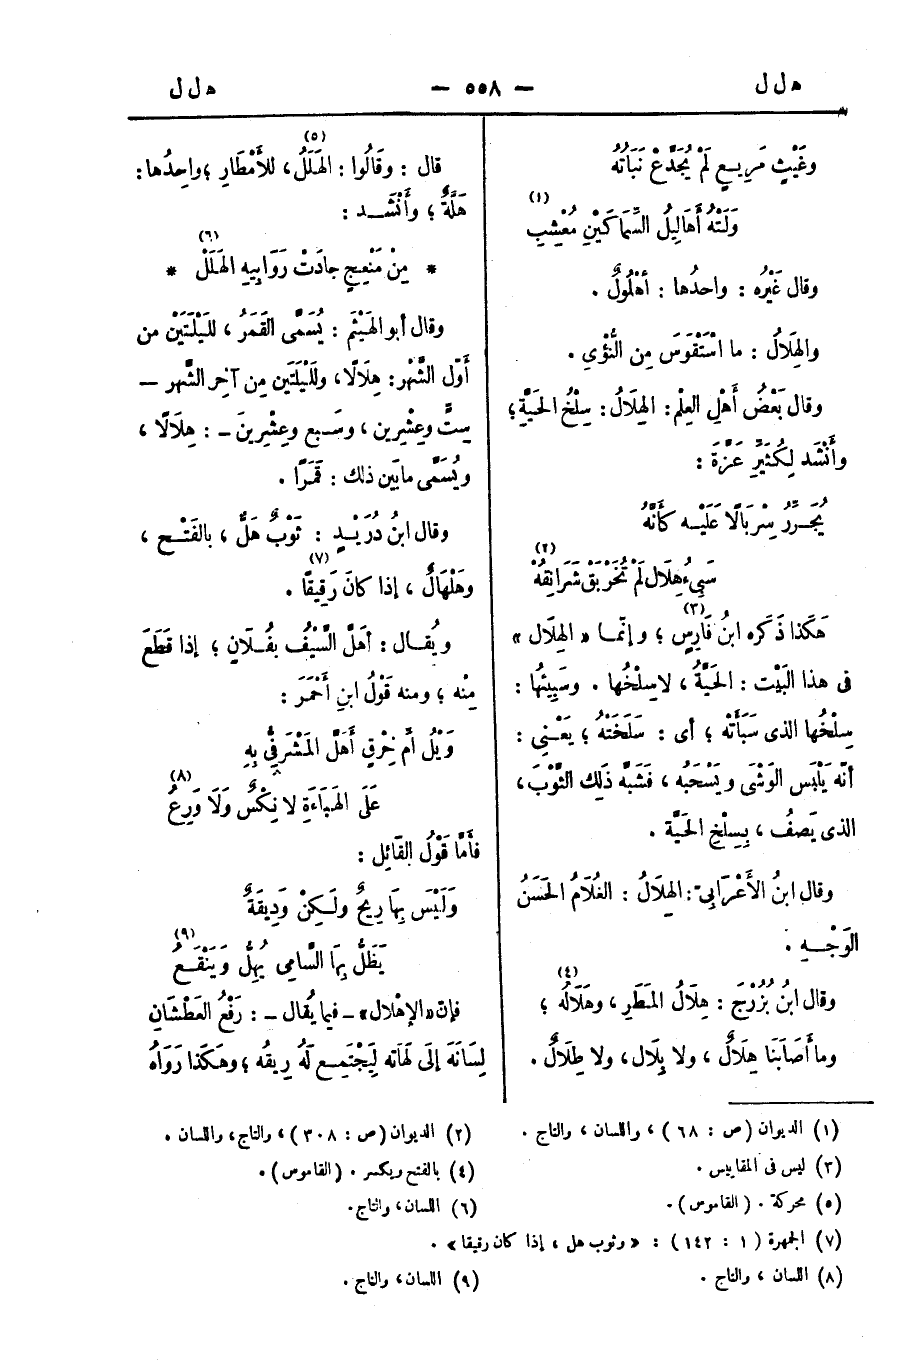 ه ل ل
— ٥٥٨ —
ه ل ل
وغَيْثٍ مَرِيعٍ لَمْ يُجَدَّعْ نَبَاتُهُ
وَلَتْهُ أَهَالِيلُ السِّمَاكَيْنِ مُعْشِبِ (١)
وقال غَيْرُه : واحدُها : أُهْلُولٌ .
والهِلَالُ : ما اسْتَقْوَسَ مِن النُّؤْيِ .
وقال بَعْضُ أَهْلِ العِلْم: الهِلَالُ: سِلْخُ الحَيَّةِ؛
وأَنْشَد لِكُثَيِّرِ عَزَّةَ :
يُجَرِّرُ سِرْبَالًا عَلَيْهِ كأَنَّهُ
سَبِىءُ هِلَالٍ لَمْ تُخَرْبَقْ شَرَانِقُهْ (٢)
هكَذا ذَكَره ابنُ فَارِسٍ (٣) ؛ وإنّما « الهِلَال »
فى هذا البَيْت : الحَيَّةُ ، لا سِلْخُها . وسَبِيئُها :
سِلْخُها الذى سَبَأَتْه ؛ أى : سَلَخَتْهُ ؛ يَعْنِى :
أنّه يَلْبَس الوَشْىَ ويَسْحَبُه ، فَشَبَّه ذَلِك الثَّوْبَ ،
الذى يَصفُ ، بِسِلْخِ الحَيَّة .
وقال ابنُ الأَعْرَابِىّ: الهِلَالُ : الغُلَامُ الحَسَنُ
الوَجْهِ .
وقال ابنُ بُزُرْجَ : هِلَالُ المَطَرِ ، وهَلَالُه (٤) ؛
وما أَصَابَنا هِلَالٌ ، ولا بِلَال ، ولا طِلَالٌ .
قال : وقَالُوا : الهَلَلُ (٥) ، للأَمْطَارِ ؛ واحِدُها :
هَلَّةٌ ؛ وأَنْشَد :
* مِنْ مَنْعِجٍ جادَتْ رَوَابِيهِ الهَلَلْ * (٦)
وقال أبو الهَيْثَمِ : يُسَمَّى القَمَرُ ، للَيْلَتَيْن من
أَوّلِ الشَّهْرِ: هِلَالًا، وللَيْلَتَينِ مِن آخِر الشَّهر —
سِتٍّ وعِشْرِين ، وسَبع وعِشْرِينَ - : هِلَالًا ،
ويُسَمَّى مابَين ذلك : قَمَرًا .
وقال ابنُ دُرَيْدٍ : ثَوْبٌ هَلٌّ ، بالفَتْح ،
وهَلْهَالٌ ، إذا كانَ رَقِيقًا (٧) .
ويُقال : أَهَلَّ السَّيْفُ بفُلَانٍ ؛ إذا قَطَعَ
مِنْه ؛ ومنه قَوْلُ ابنِ أَحْمَرَ :
وَيْلُ أُمِّ خِرْقٍ أَهَلَّ المَشْرَفِىُّ بِهِ
عَلَى الهَبَاءَةِ لا نِكْسٌ وَلَا وَرِعُ (٨)
فأَمَّا قَوْلُ القَائِل :
وَلَيْسَ بِهَا رِيحٌ ولَكِنْ وَدِيقَةٌ
يَظَلُّ بِهَا السَّامِى يُهِلُّ وَيَنْقَعُ (٩)
فإن «الإهْلال» - فيما يُقال - : رَفْعُ العَطْشَانِ
لِسَانَهُ إلَى لَهَاتِه لِيَجْتَمِع لَهُ رِيقُه ؛ وهكَذا رَوَاهُ
(١) الديوان (ص : ٦٨) ، واللسان ، والتاج .
(٢) الديوان (ص : ٣٠٨) ، والتاج، واللسان .
(٣) ليس فى المقاييس .
(٤) بالفتح ويكسر . (القاموس) .
(٥) محركة . (القاموس) .
(٦) اللسان، والتاج.
(٧) الجمهرة (١ : ١٤٢) : « وثوب هل ، إذا كان رقيقا» .
(٨) اللسان ، والتاج .
(٩) اللسان، والتاج .